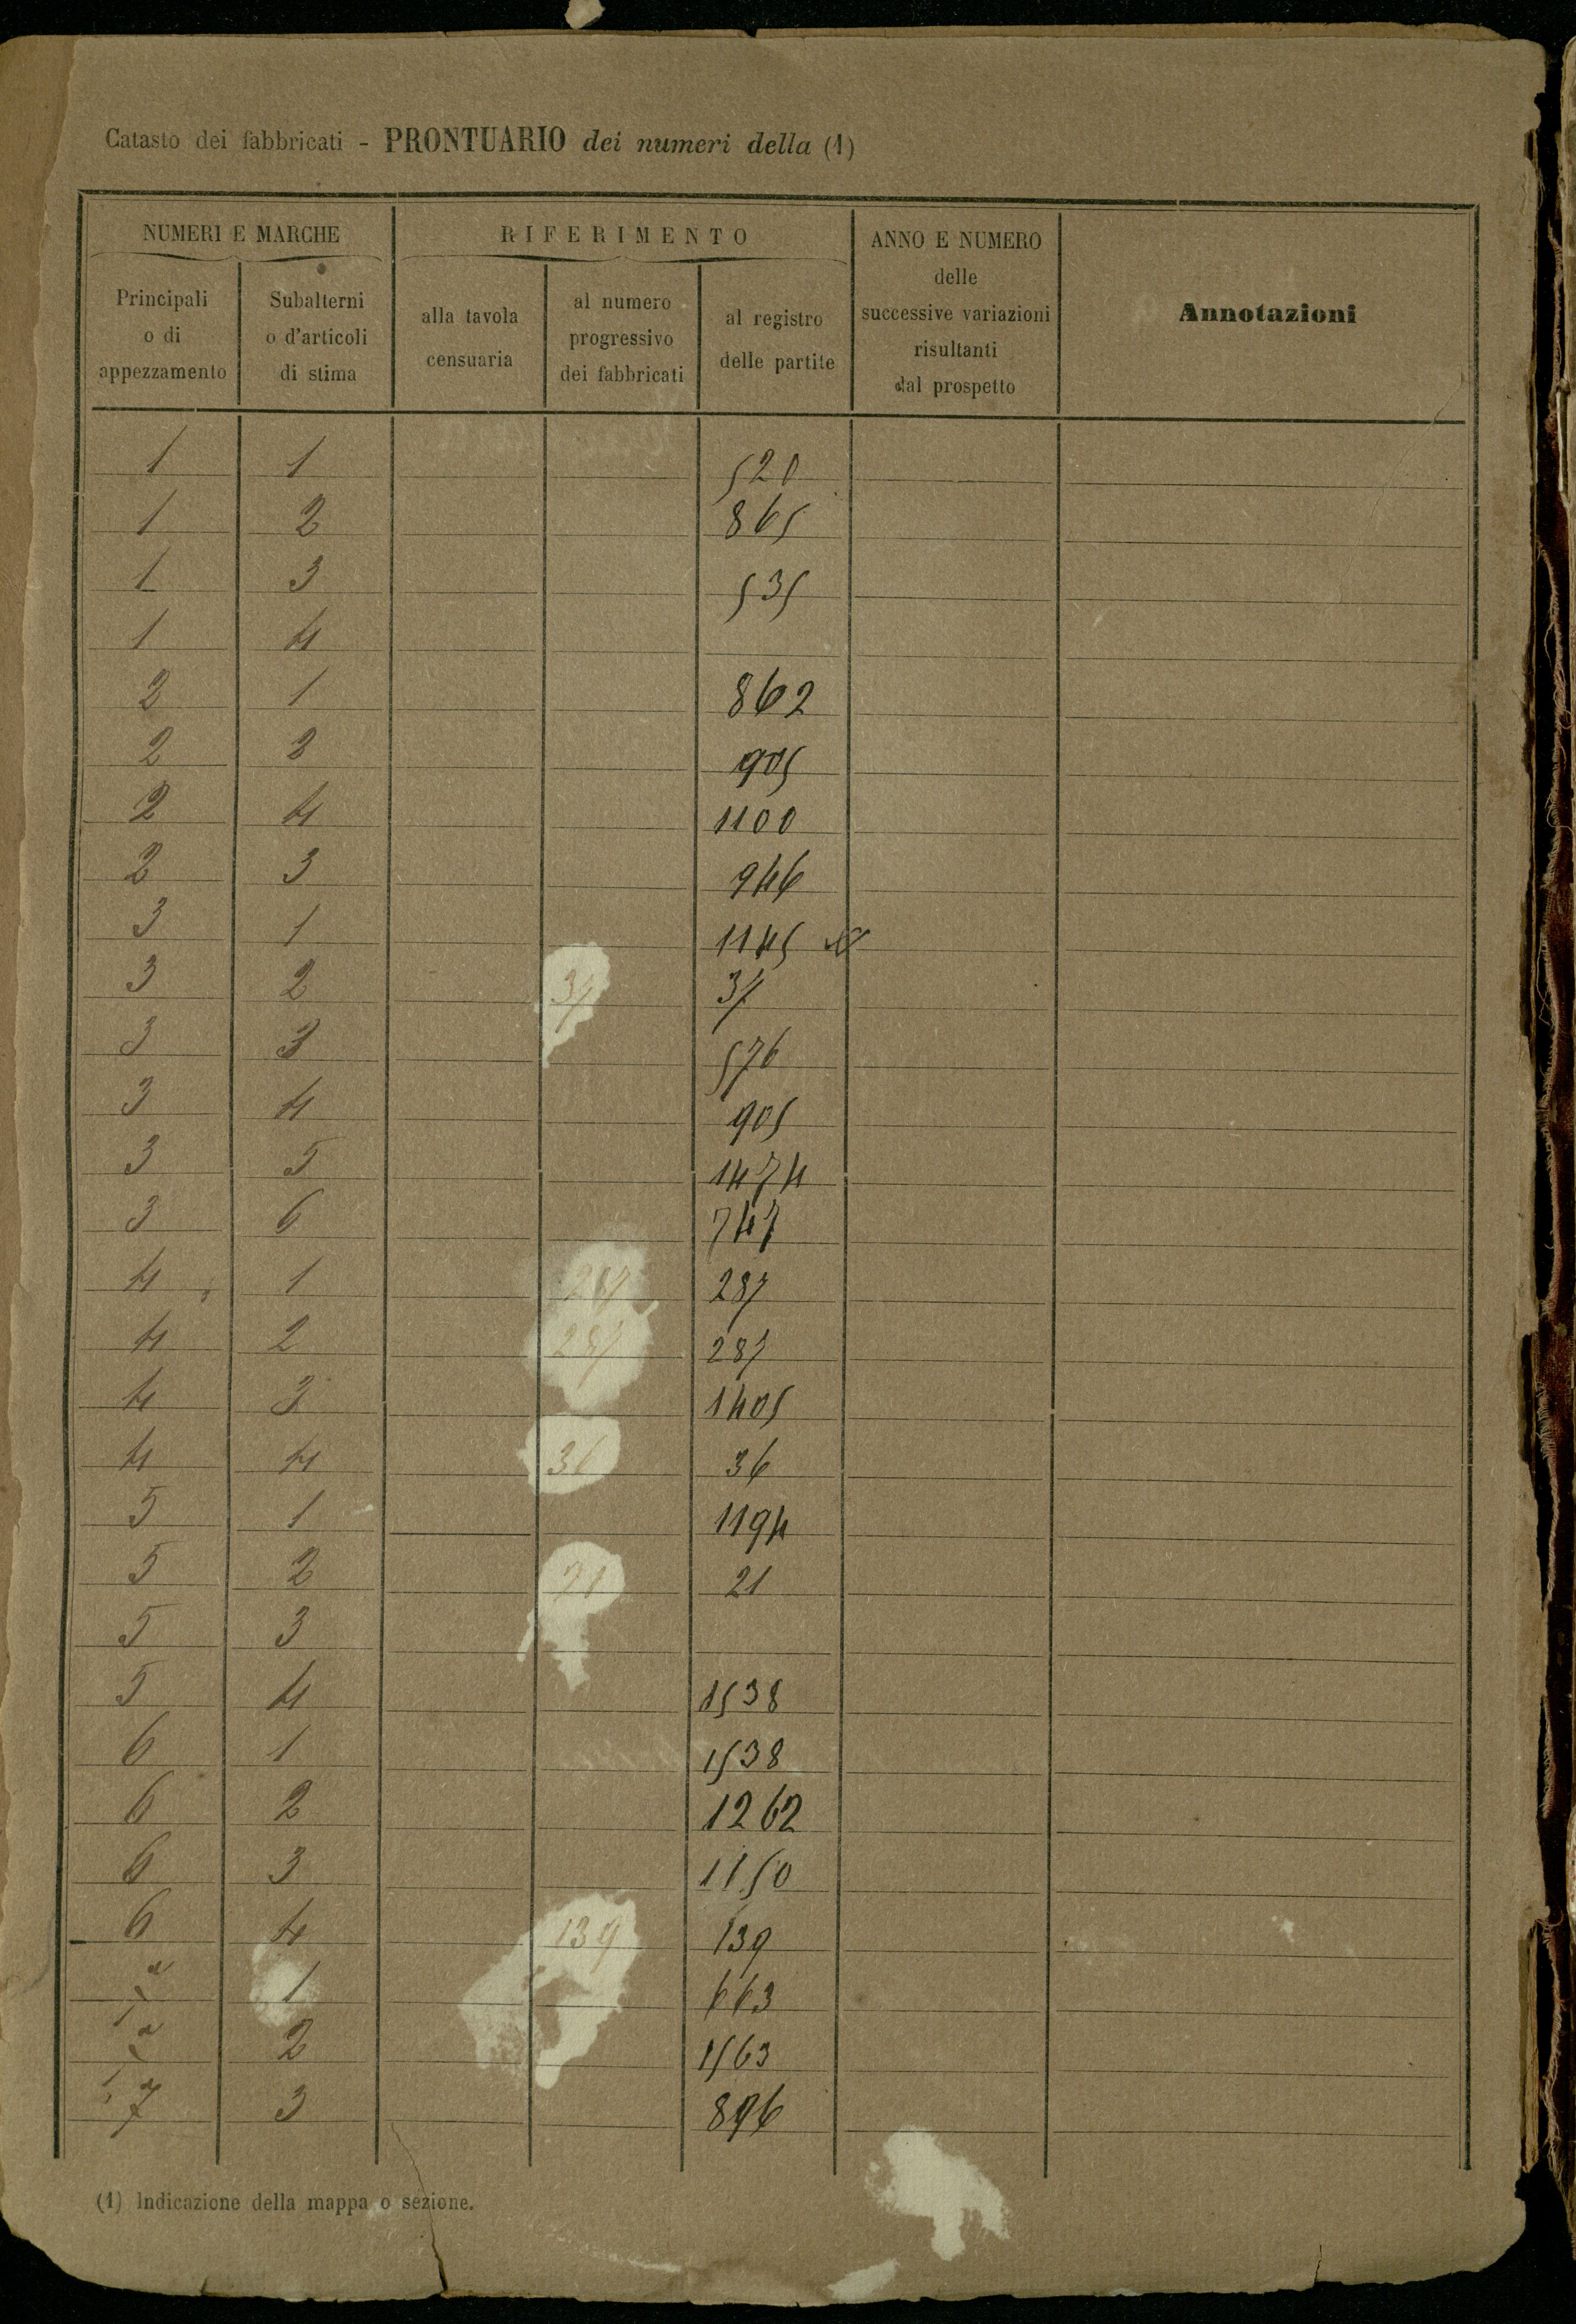 Catasto dei fabbricati - PRONTUARIO dei numeri della (1)
NUMERI E MARCHE
RIFERIMENTO
ANNO E NUMERO
delle
successive variazioni
risultanti
dal prospetto
Annotazioni
Principali
o di
appezzamento
Subalterni
o d'articoli
di stima
alla tavola
censuaria
al numero
progressivo
dei fabbricati
al registro
delle partite
1 1 520
1 2 865
1 3 535
1 4
2 1 862
2 2 905
2 4 1100
2 3 946
3 1 1145
3 2 37 37
3 3 576
3 4 905
3 5 1474
3 6 747
4 1 287 287
4 2 287 287
4 3 1405
4 4 36 36
5 1 1194
5 2 21 21
5 3
5 4 1538
6 1 1538
6 2 1262
6 3 1150
6 4 139 139
1 663
2 1563
7 3 896
(1) Indicazione della mappa o sezione.